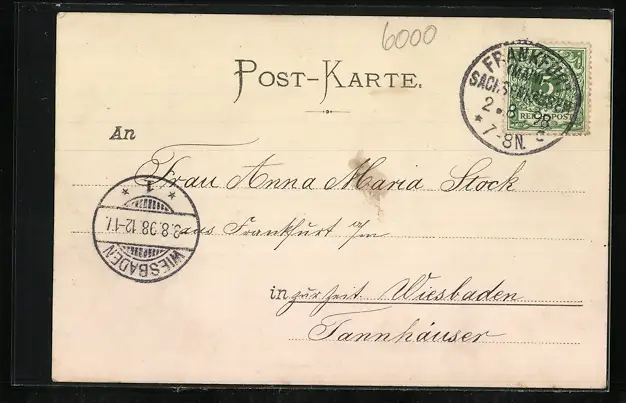 6000
POST-KARTE.
FRANKFURT
(MAIN)
SACHSENHAUSEN
2. 8. 98
7-8N.
5
REICHSPOST
An
Frau Anna Maria Stock
aus Frankfurt a/m
in zur Zeit Wiesbaden
Tannhäuser
WIESBADEN
.8.98.12-1
1